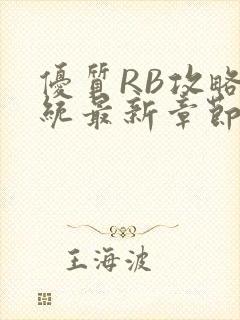 優質RB攻略
統最新章節
王海波